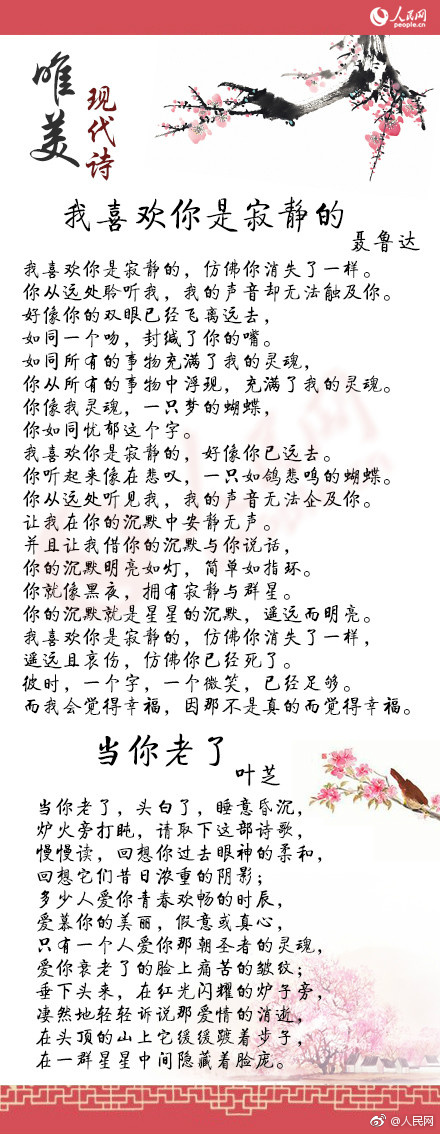 人民网
people.cn
唯美
现代诗
我喜欢你是寂静的
聂鲁达
我喜欢你是寂静的，仿佛你消失了一样。
你从远处聆听我，我的声音却无法触及你。
好像你的双眼已经飞离远去，
如同一个吻，封缄了你的嘴。
如同所有的事物充满了我的灵魂，
你从所有的事物中浮现，充满了我的灵魂。
你像我灵魂，一只梦的蝴蝶，
你如同忧郁这个字。
我喜欢你是寂静的，好像你已远去。
你听起来像在悲叹，一只如鸽悲鸣的蝴蝶。
你从远处听见我，我的声音无法企及你。
让我在你的沉默中安静无声。
并且让我借你的沉默与你说话，
你的沉默明亮如灯，简单如指环。
你就像黑夜，拥有寂静与群星。
你的沉默就是星星的沉默，遥远而明亮。
我喜欢你是寂静的，仿佛你消失了一样，
遥远且哀伤，仿佛你已经死了。
彼时，一个字，一个微笑，已经足够。
而我会觉得幸福，因那不是真的而觉得幸福。
当你老了
叶芝
当你老了，头白了，睡意昏沉，
炉火旁打盹，请取下这部诗歌，
慢慢读，回想你过去眼神的柔和，
回想它们昔日浓重的阴影；
多少人爱你青春欢畅的时辰，
爱慕你的美丽，假意或真心，
只有一个人爱你那朝圣者的灵魂，
爱你衰老了的脸上痛苦的皱纹；
垂下头来，在红光闪耀的炉子旁，
凄然地轻轻诉说那爱情的消逝，
在头顶的山上它缓缓踱着步子，
在一群星星中间隐藏着脸庞。
@人民网